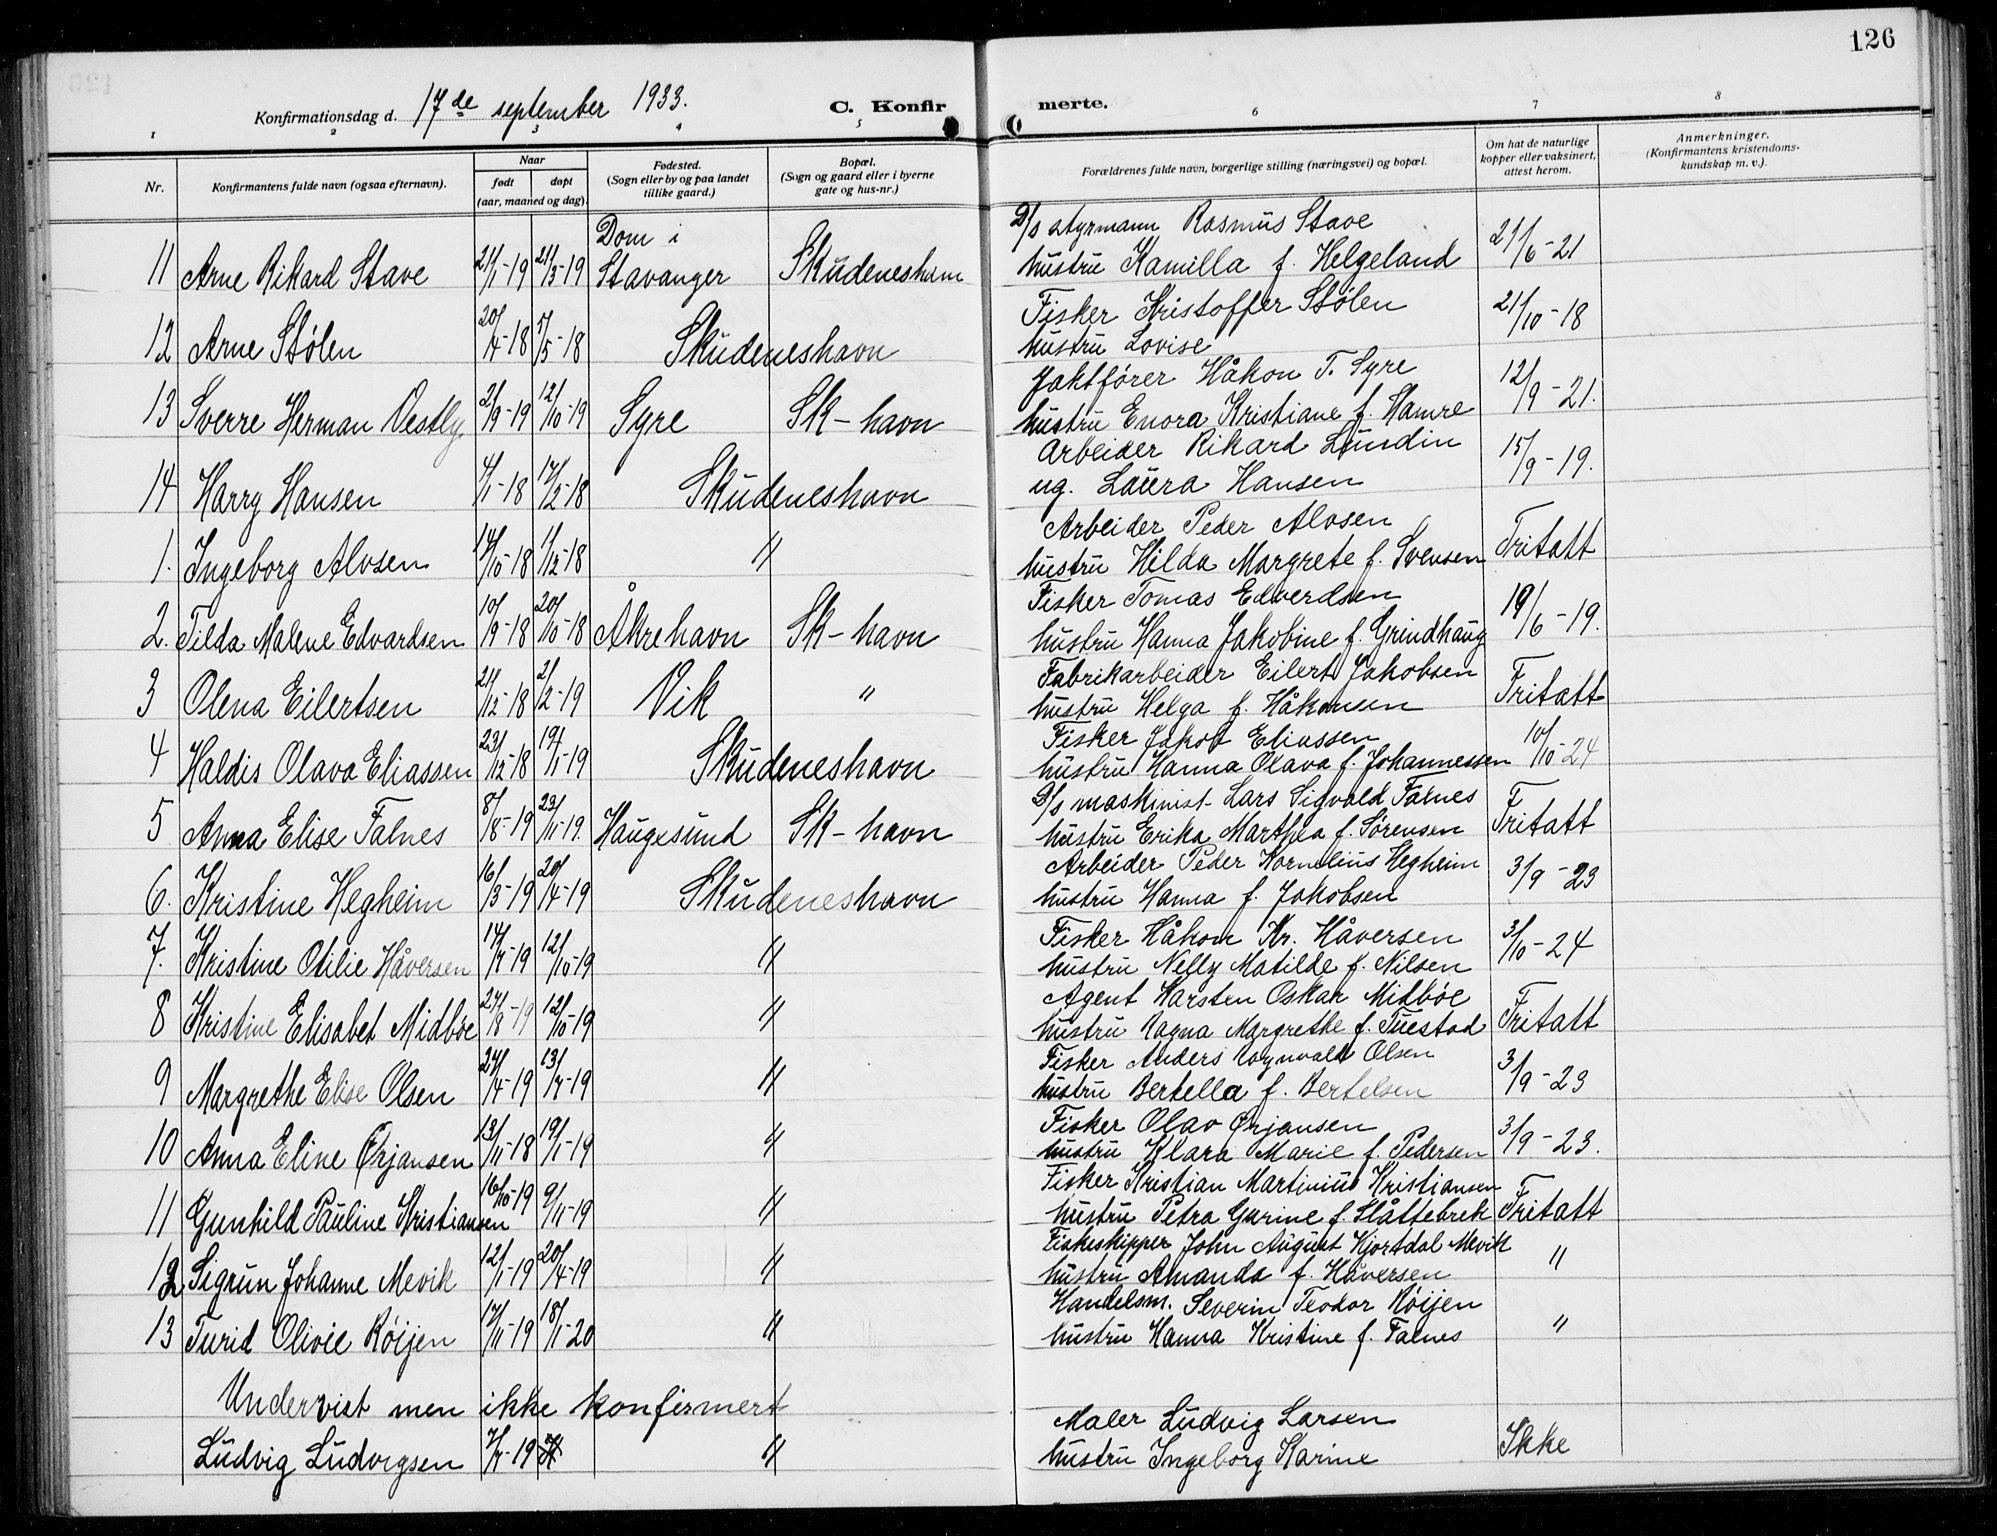 126
Konfirmationsdag d. 17de september 1933.
C. Konfirmerte.
1 2 3 4 5 6 7 8
Nr.
Konfirmantens fulde navn (ogsaa efternavn).
Naar
født døpt
(aar, maaned og dag).
Fødested.
(Sogn eller by og paa landet
tillike gaard.)
Bopæl.
(Sogn og gaard eller i byerne
gate og hus-nr.)
Forældrenes fulde navn, borgerlige stilling (næringsvei) og bopæl.
Om hat de naturlige
kopper eller vaksinert,
attest herom.
Anmerkninger.
(Konfirmantens kristendoms-
kundskap m. v.).
Dom i D/s styrmann Rasmus Stave
11 Arne Rikard Stave 21/1-19 21/3-19 Stavanger Skudeneshavn hustru Kamilla f. Helgeland 21/6-21
Fisker Kristoffer Stølen
12 Arne Stølen 20/4-18 /5-18 Skudeneshavn hustru Lovise 21/10-18
Jaktfører Håkon T. Syre
13 Sverre Herman Vestly 2/9-19 12/10-19 Syre Sk-havn hustru Enora Kristiane f. Hamre 12/9-21.
Arbeider Rikard Lundin
14 Harry Hansen 4/1-18 17/2-18 Skudeneshavn ug. Laura Hansen 15/9-19.
Arbeider Peder Alvsen
1. Ingeborg Alvsen 14/10-18 1/12-18 " hustru Hilda Margrete f. Svensen Fritatt
Fisker Tomas Edverdsen
2. Tilda Malene Edvardsen 10/9-18 20/10-18 Åkrehavn Sk-havn hustru Hanna Jakobine f. Grindhaug 19/6-19.
Fabrikarbeider Eilert Jakobsen
3 Olena Eilertsen 21/12-18 2/2-19 Vik " hustru Helga f. Håkonsen Fritatt
Fisker Jakob Eliassen
4 Haldis Olava Eliassen 23/12-18 19/1-19 Skudeneshavn hustru Hanna Olava f. Johannessen 10/10-24
D/s maskinist Lars Sigvald Falnes
5 Anna Elise Falnes 8/8-19 23/11-19. Haugesund Sk-havn hustru Erika Marthea f. Sørensen Fritatt
Arbeider Peder Kornelius Hegheim
6. Kristine Hegheim 16/3-19 20/4-19 Skudeneshavn hustru Hanna f. Jakobsen 3/9-23
Fisker Håkon Kr. Håversen
7. Kristine Otilie Håversen 14/7-19 12/10-19 " hustru Nelly Matilde f. Nilsen 3/10-24
Agent Karsten Oskar Midbøe
8 Kristine Elisabet Midbøe 27/8-19 12/10-19 " hustru Ragna Margrethe f. Tuestad Fritatt
Fisker Anders Rognvald Olsen
9 Margrethe Elise Olsen 24/4-19 13/7-19 " hustru Bertella f. Bertelsen 3/9-23
Fisker Olav Ørjansen
10 Anna Eline Ørjansen 13/11-18 19/1-19 " hustru Klara Marie f. Pedersen 3/9-23.
Fisker Kristian Martinius Kristiansen
11 Gunhild Pauline Kristiansen 16/10-19 9/11-19 " hustru Petra Gurine f. Slåttebrek Fritatt
Fiskeskipper John August Hjortdal Mevik
12 Sigrun Johanne Mevik 12/1-19 20/4-19 " hustru Amanda f. Håversen "
Handelsm. Severin Teodor Røijen
13 Turid Olivie Røijen 17/11-19 18/1-20 " hustru Hanna Kristine f. Falnes "
Undervist men ikke konfirmert
Maler Ludvig Larsen
Ludvig Ludvigsen 7/7-19 " hustru Ingeborg Karine Ikke